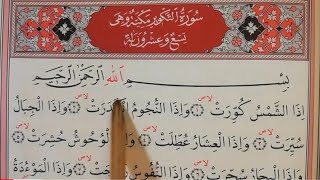 سُورَةُ التَّكْوِيرِ مَكِّيَّةٌ وَهِيَ
تِسْعٌ وَعِشْرُونَ اٰيَةً
بِسْمِ اللّٰهِ الرَّحْمٰنِ الرَّحِيمِ
اِذَا الشَّمْسُ كُوِّرَتْ ۝ وَاِذَا النُّجُومُ انْكَدَرَتْ ۝ وَاِذَا الْجِبَالُ
سُيِّرَتْ ۝ وَاِذَا الْعِشَارُ عُطِّلَتْ ۝ وَاِذَا الْوُحُوشُ حُشِرَتْ ۝
وَاِذَا الْبِحَارُ سُجِّرَتْ ۝ وَاِذَا النُّفُوسُ زُوِّجَتْ ۝ وَاِذَا الْمَوْءُدَةُ